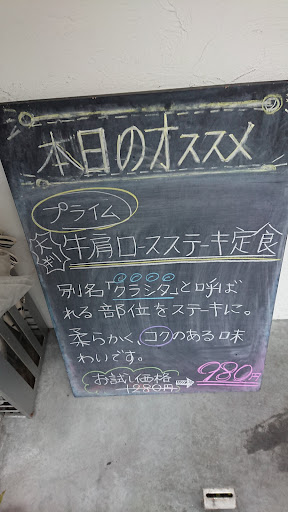 本日のオススメ
プライム
牛肩ロースステーキ定食
別名「クラシタ」と呼ば
れる部位をステーキに。
柔らかく、コクのある味
わいです。
お試し価格
1280円 980円